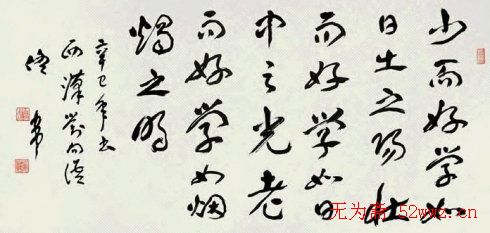 少而好学如
日出之阳壮
而好学如日
中之光老
而好学如炳
烛之明
辛巳年书
西汉刘向语
无为斋 52wwz.cn